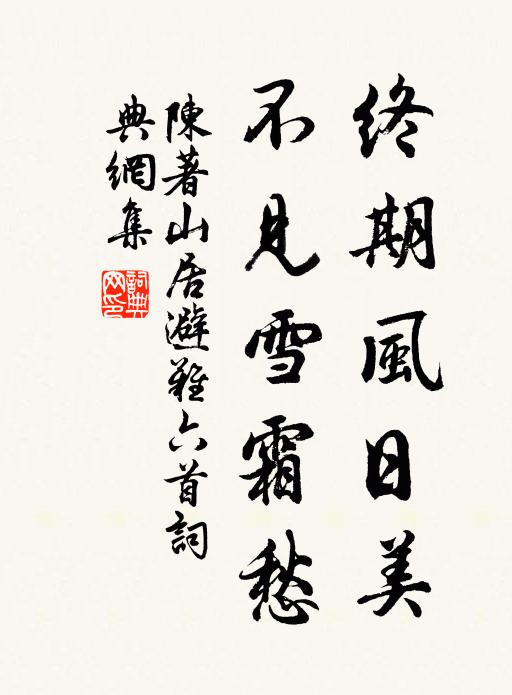 終期風日美
不見雪霜愁
陳著山居避難六首詞
典網集
詞典網印